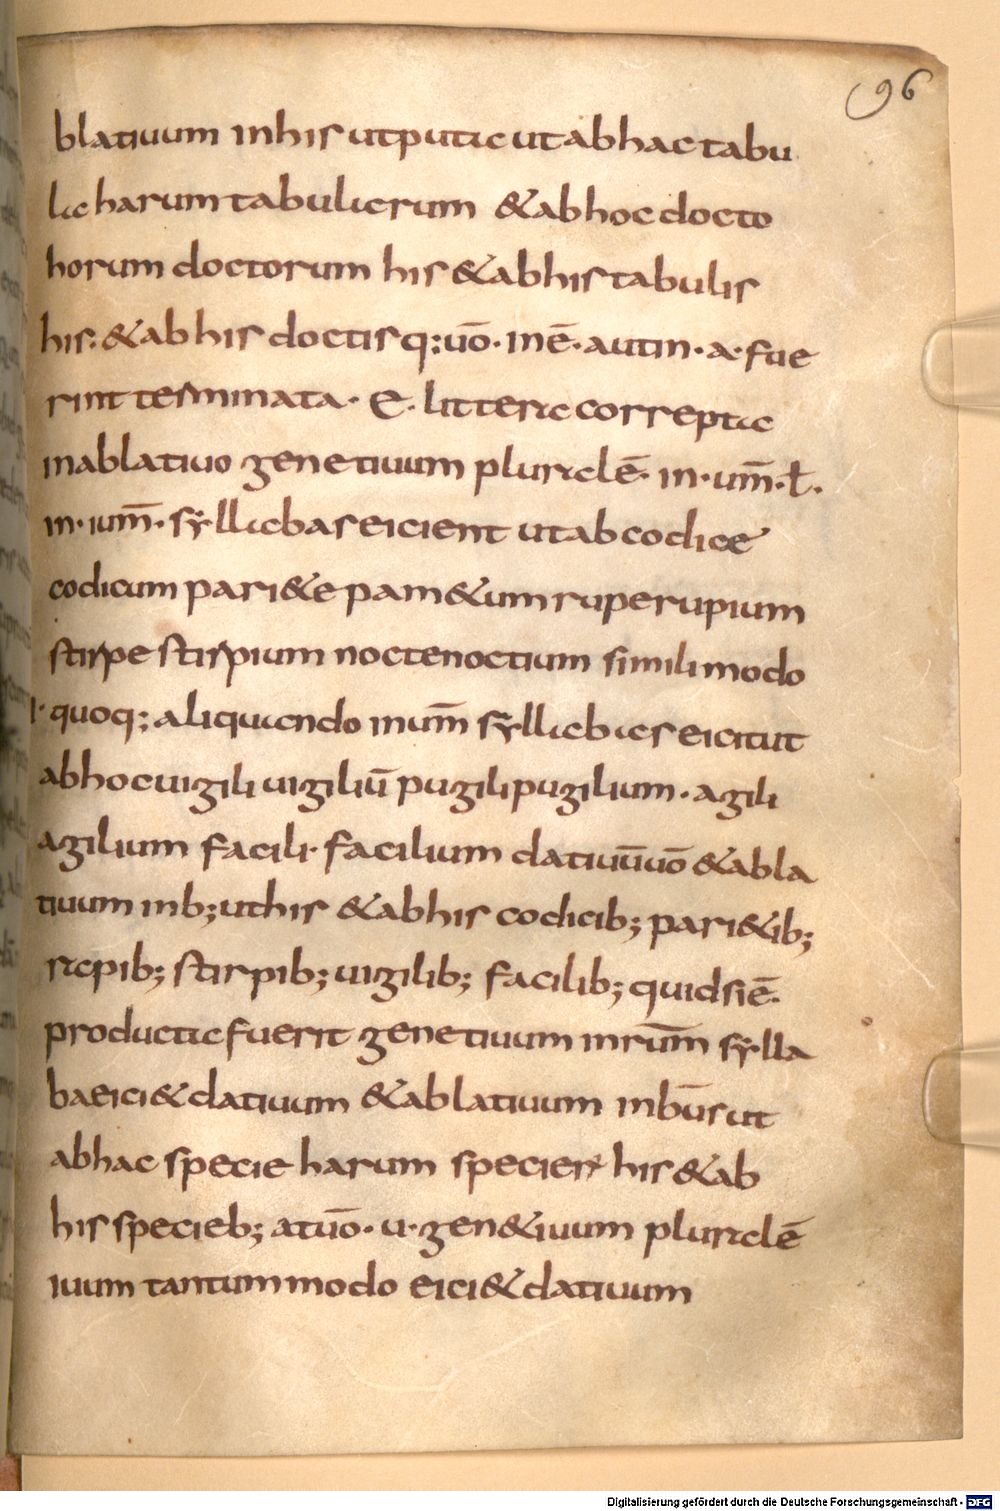 96
blatiuum inhis utputa utabhac tabu
la harum tabularum &abhoc docto
horum doctorum his &abhis tabulis
his· &abhis doctis q;uō· inē· autin· a· fue
rint terminata· e· littera correpta
inablatiuo genetiuum pluralē· in·um̄·ł·
in·ium̄· syllabas eicient utab codice
codicum pari&e pari&um rupe rupium
stirpe stirpium nocte noctium simili modo
i· quoq; aliquando inum̄ syllabas eicit ut
abhoc uigili uigiliū pugili pugilium· agili
agilium facili· facilium datiuūuō &abla
tiuum inb; uthis &abhis codicib; pari&ib;
rapib; stirpib; uigilib; facilib; quidsiē·
producta fuerit genetiuum inrum̄ sylla
baeici& datiuum &ablatiuum inbūs ut
abhac specie harum specierū his &ab
his specieb; atuō· u· gen&iuum pluralē
iuum tantummodo eici& datiuum
Digitalisierung gefördert durch die Deutsche Forschungsgemeinschaft - DFG